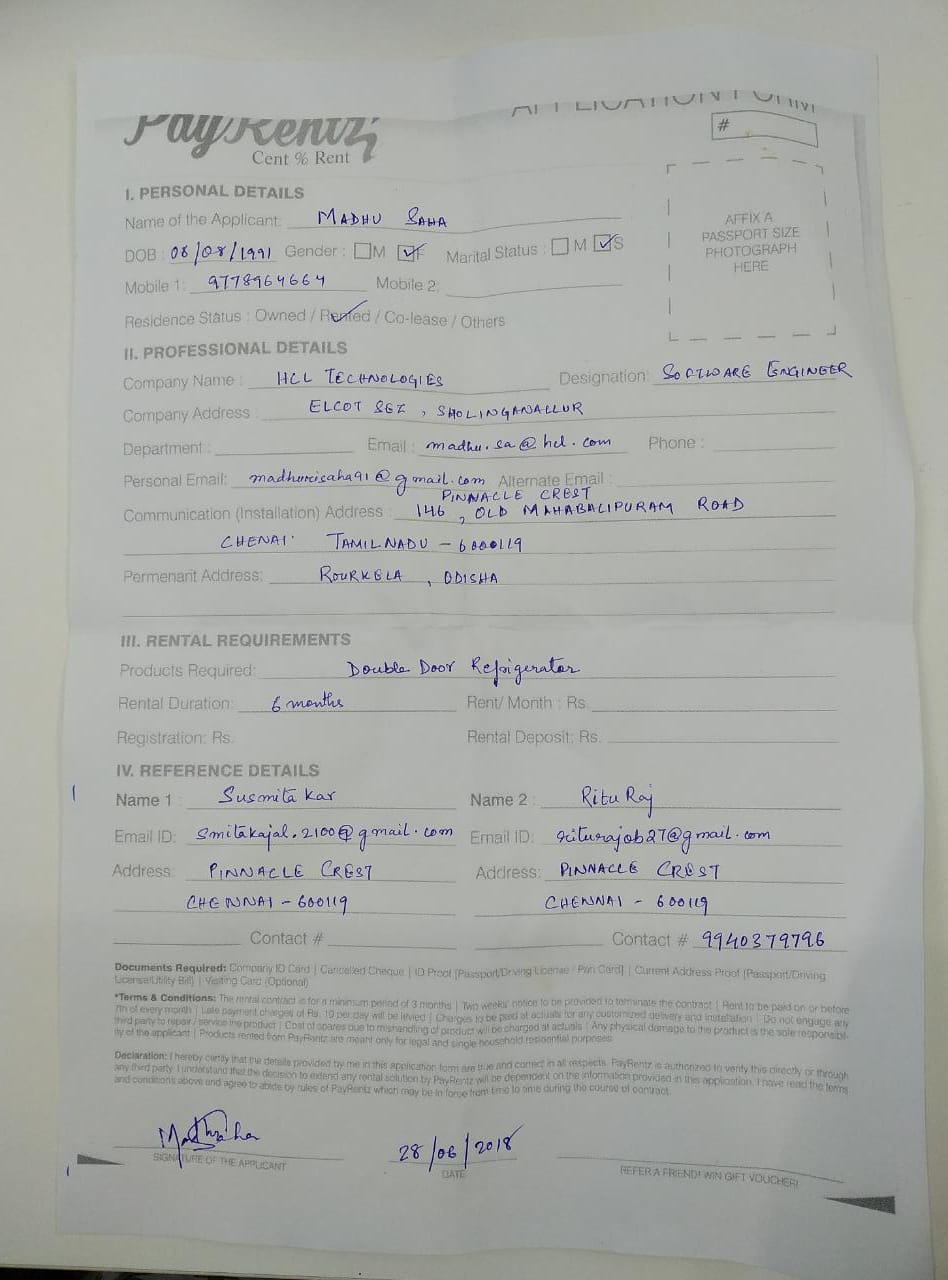 APPLICATION FORM
PayRentz
Cent % Rent
#
I. PERSONAL DETAILS
Name of the Applicant: MADHU SAHA
AFFIX A
PASSPORT SIZE
PHOTOGRAPH
HERE
DOB : 08/08/1991 Gender : M F Marital Status : M S
Mobile 1: 9778964664 Mobile 2:
Residence Status : Owned / Rented / Co-lease / Others
II. PROFESSIONAL DETAILS
Company Name : HCL TECHNOLOGIES Designation: SOFTWARE ENGINEER
Company Address : ELCOT SEZ , SHOLINGANALLUR
Department : Email : madhu.sa@hcl.com Phone :
Personal Email: madhumisaha91@gmail.com Alternate Email :
PINNACLE CREST
Communication (Installation) Address : 146 , OLD MAHABALIPURAM ROAD
CHENAI TAMILNADU - 6000119
Permenant Address: ROURKELA , ODISHA
III. RENTAL REQUIREMENTS
Products Required: Double Door Refrigerator
Rental Duration: 6 months Rent/ Month : Rs.
Registration: Rs. Rental Deposit: Rs.
IV. REFERENCE DETAILS
Name 1 : Susmita Kar Name 2 : Ritu Raj
Email ID: smitakajal.2100@gmail.com Email ID: riturajob27@gmail.com
Address: PINNACLE CREST Address: PINNACLE CREST
CHENNAI - 600119 CHENNAI - 600119
Contact # Contact # 9940379796
Documents Required: Company ID Card | Cancelled Cheque | ID Proof [Passport/Driving License / Pan Card] | Current Address Proof [Passport/Driving
License/Utility Bill) | Visiting Card (Optional)
*Terms & Conditions: The rental contract is for a minimum period of 3 months | Two weeks' notice to be provided to terminate the contract | Rent to be paid on or before
7th of every month | Late payment charges of Rs. 10 per day will be levied | Charges to be paid at actuals for any customized delivery and installation | Do not engage any
third party to repair / service the product | Cost of spares due to mishandling of product will be charged at actuals | Any physical damage to the product is the sole responsibil-
ity of the applicant | Products rented from PayRentz are meant only for legal and single household residential purposes.
Declaration: I hereby certify that the details provided by me in this application form are true and correct in all respects. PayRentz is authorized to verify this directly or through
any third party. I understand that the decision to extend any rental solution by PayRentz will be dependent on the information provided in this application. I have read the terms
and conditions above and agree to abide by rules of PayRentz which may be in force from time to time during the course of contract.
28/06/2018
SIGNATURE OF THE APPLICANT DATE REFER A FRIEND! WIN GIFT VOUCHER!